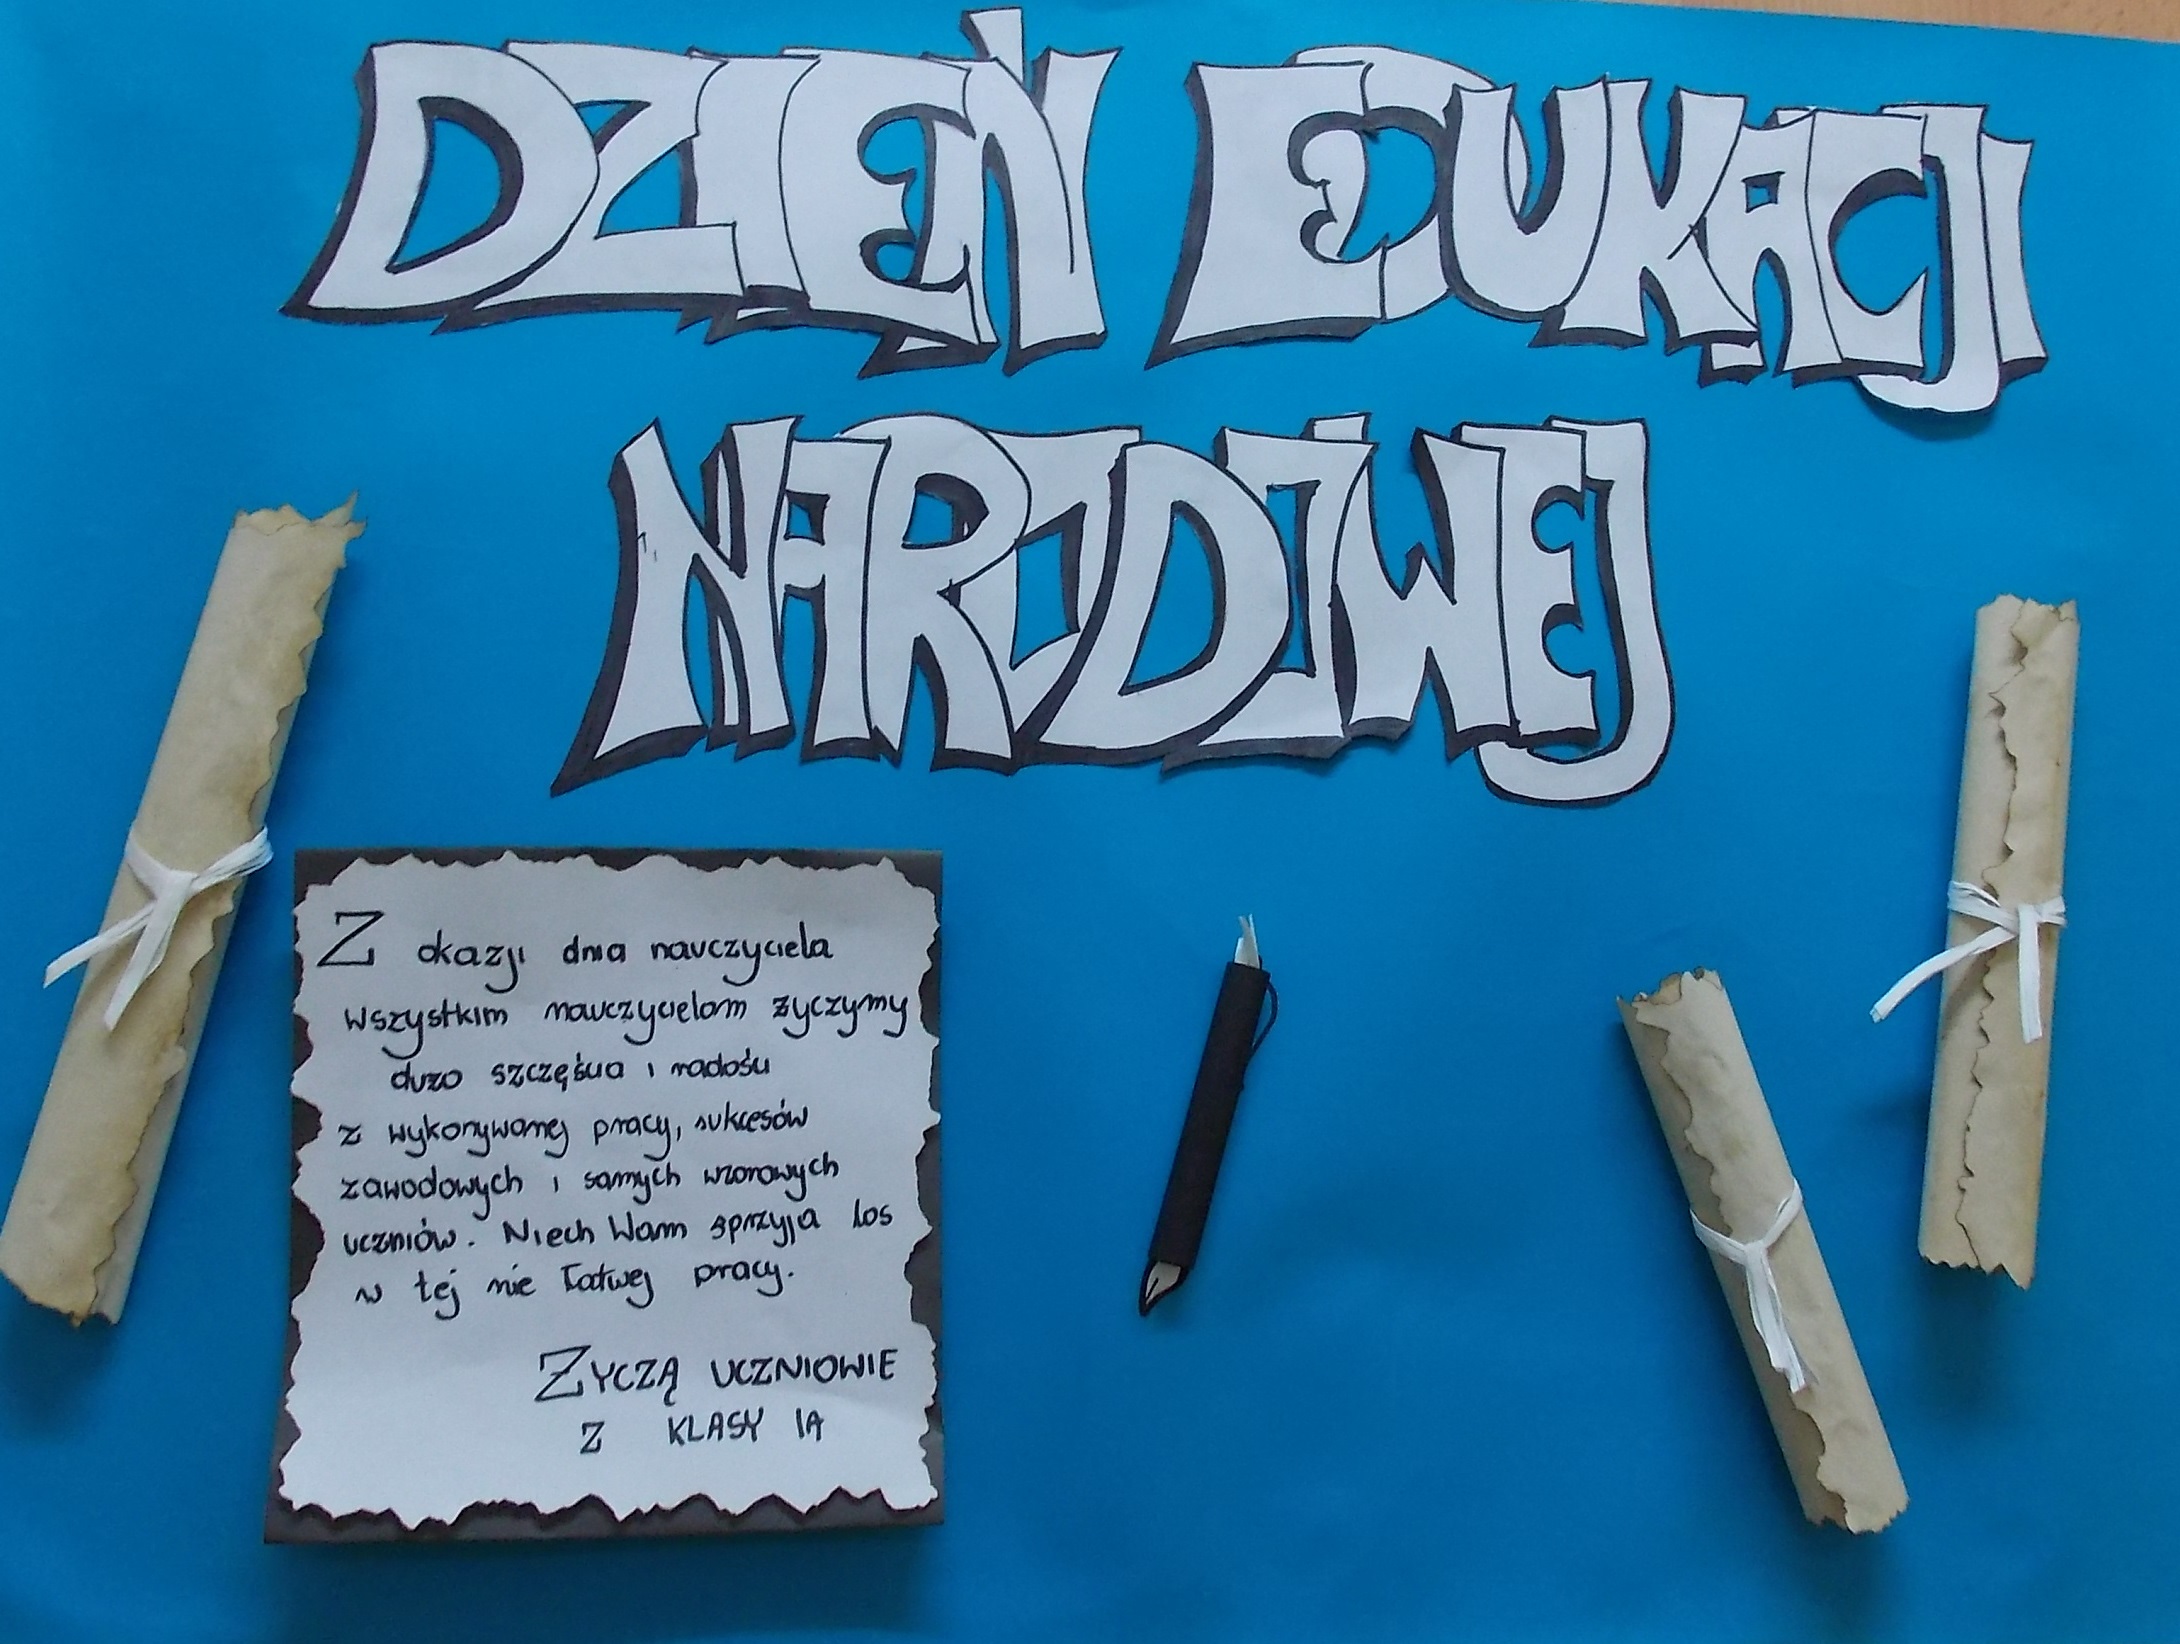 DZIEŃ EDUKACJI
NARODOWEJ
Z okazji dnia nauczyciela
wszystkim nauczycielom życzymy
dużo szczęścia i radości
z wykonywanej pracy, sukcesów
zawodowych i samych wzorowych
uczniów. Niech Wam sprzyja los
w tej nie łatwej pracy.
ŻYCZĄ UCZNIOWIE
Z KLASY IA